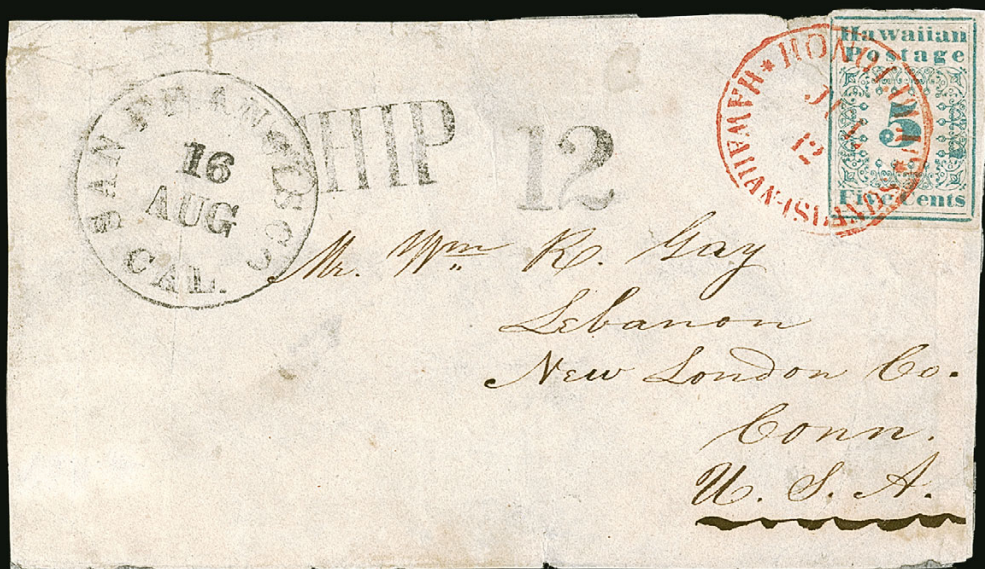 SAN FRANCISCO
16
AUG
CAL.
SHIP
12
HONOLULU
HAWAIIAN-ISLANDS
12
Hawaiian
Postage
5
Five Cents
Mr. Wm R. Gay
Lebanon
New London Co.
Conn.
U. S. A.